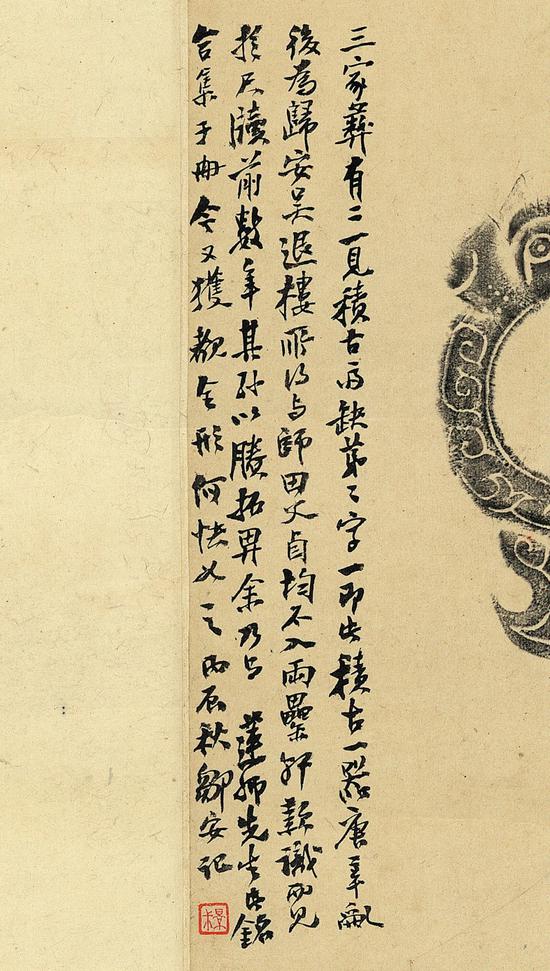 三家彝有二一見積古而缺第二字一即此積古一器唐
後為歸安吴退樓所得與師田父卣均不入兩罍軒款識而見
於尺牘前數年其孫以賸拓畀余乃與蓮師先生此銘
合集于冊今又獲觀全形何快如之丙辰秋鄒安記